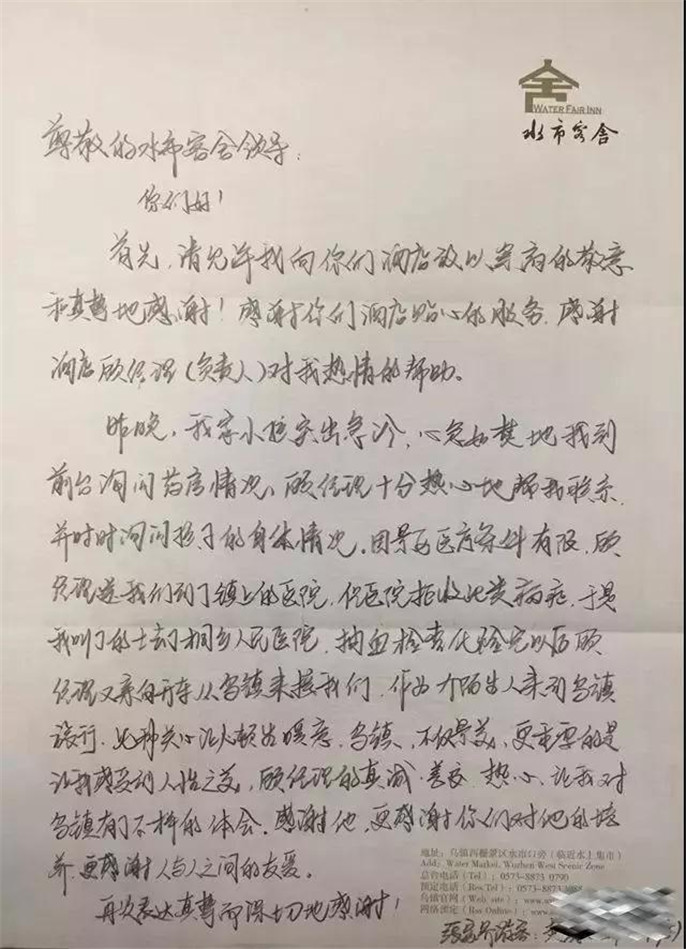 舍
WATER FAIR INN
水市客舍
尊敬的水市客舍领导：
你们好！
首先，请允许我向你们酒店致以崇高的敬意
和真挚地感谢！感谢你们酒店贴心的服务，感谢
酒店顾经理（负责人）对我热情的帮助。
昨晚，我家小孩突出急诊，心急如焚地我到
前台询问药房情况，顾经理十分热心地帮我联系，
并时时询问孩子的身体情况。因景区医疗条件有限，顾
经理送我们到了镇上的医院，但医院拒收此类病症，于是
我叫了的士去了桐乡人民医院，抽血检查化验完以后顾
经理又亲自开车从乌镇来接我们，作为一个陌生人来到乌镇
旅行，此种关心让人顿发暖意，乌镇，不仅景美，更重要的是
让我感受到人性之美，顾经理的真诚、善良、热心，让我对
乌镇有了不一样的体会。感谢他，更感谢你们对他的培
养，更感谢人与人之间的友爱。
再次表达真挚而深切地感谢！
地址：乌镇西栅景区水市口旁（临近水上集市）
Add: Water Market, Wuzhen West Scenic Zone
总台电话（Tel）：0573-8873 0790
预定电话（Res Tel）：0573-8873
乌镇官网（Web site）：www.
网络预定（Res Online）：www.
张家界游客：